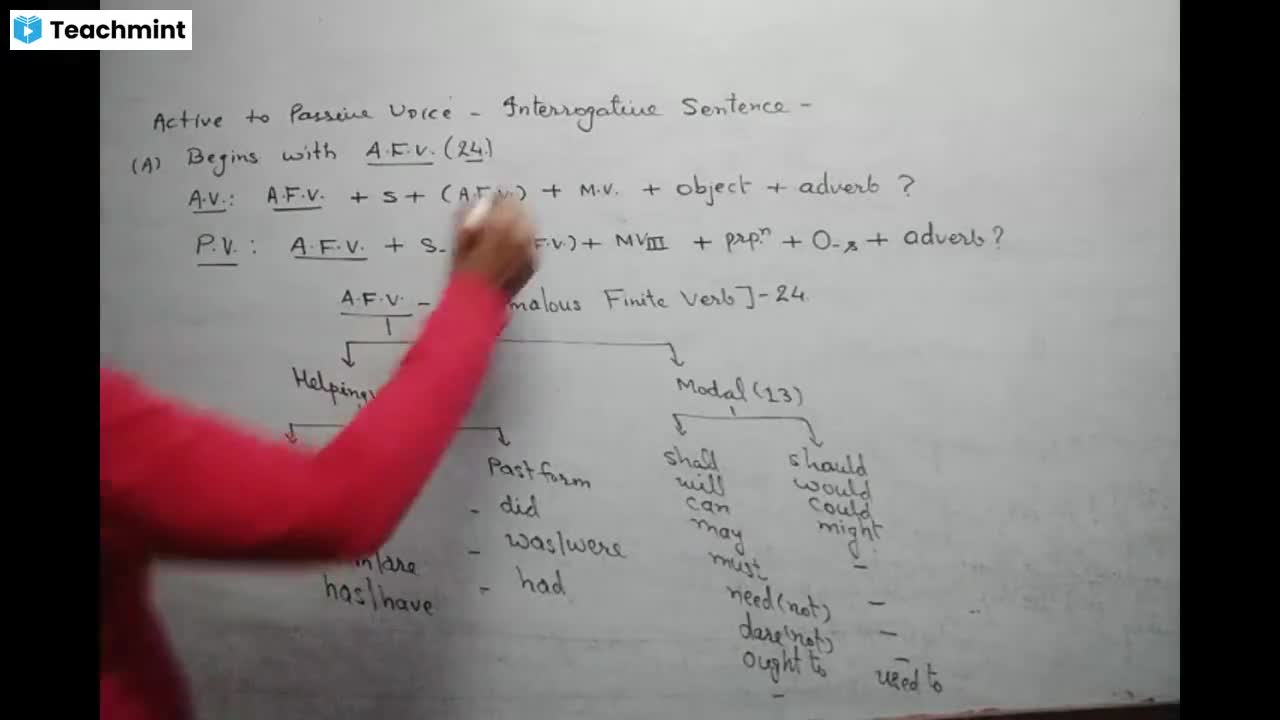 Teachmint
Active to Passive Voice - Interrogative Sentence -
(A) Begins with A.F.V. (24)
A.V.: A.F.V. + S + (A.F.V.) + M.V. + object + adverb ?
P.V.: A.F.V. + S- F.V.) + MVIII + prpⁿ + O-s + adverb?
A.F.V. - malous Finite Verb] - 24
Helping Modal (13)
Past form shall should
will would
- did can could
may might
/are - was/were must -
has/have - had need(not) -
dare(not) -
ought to -
- used to